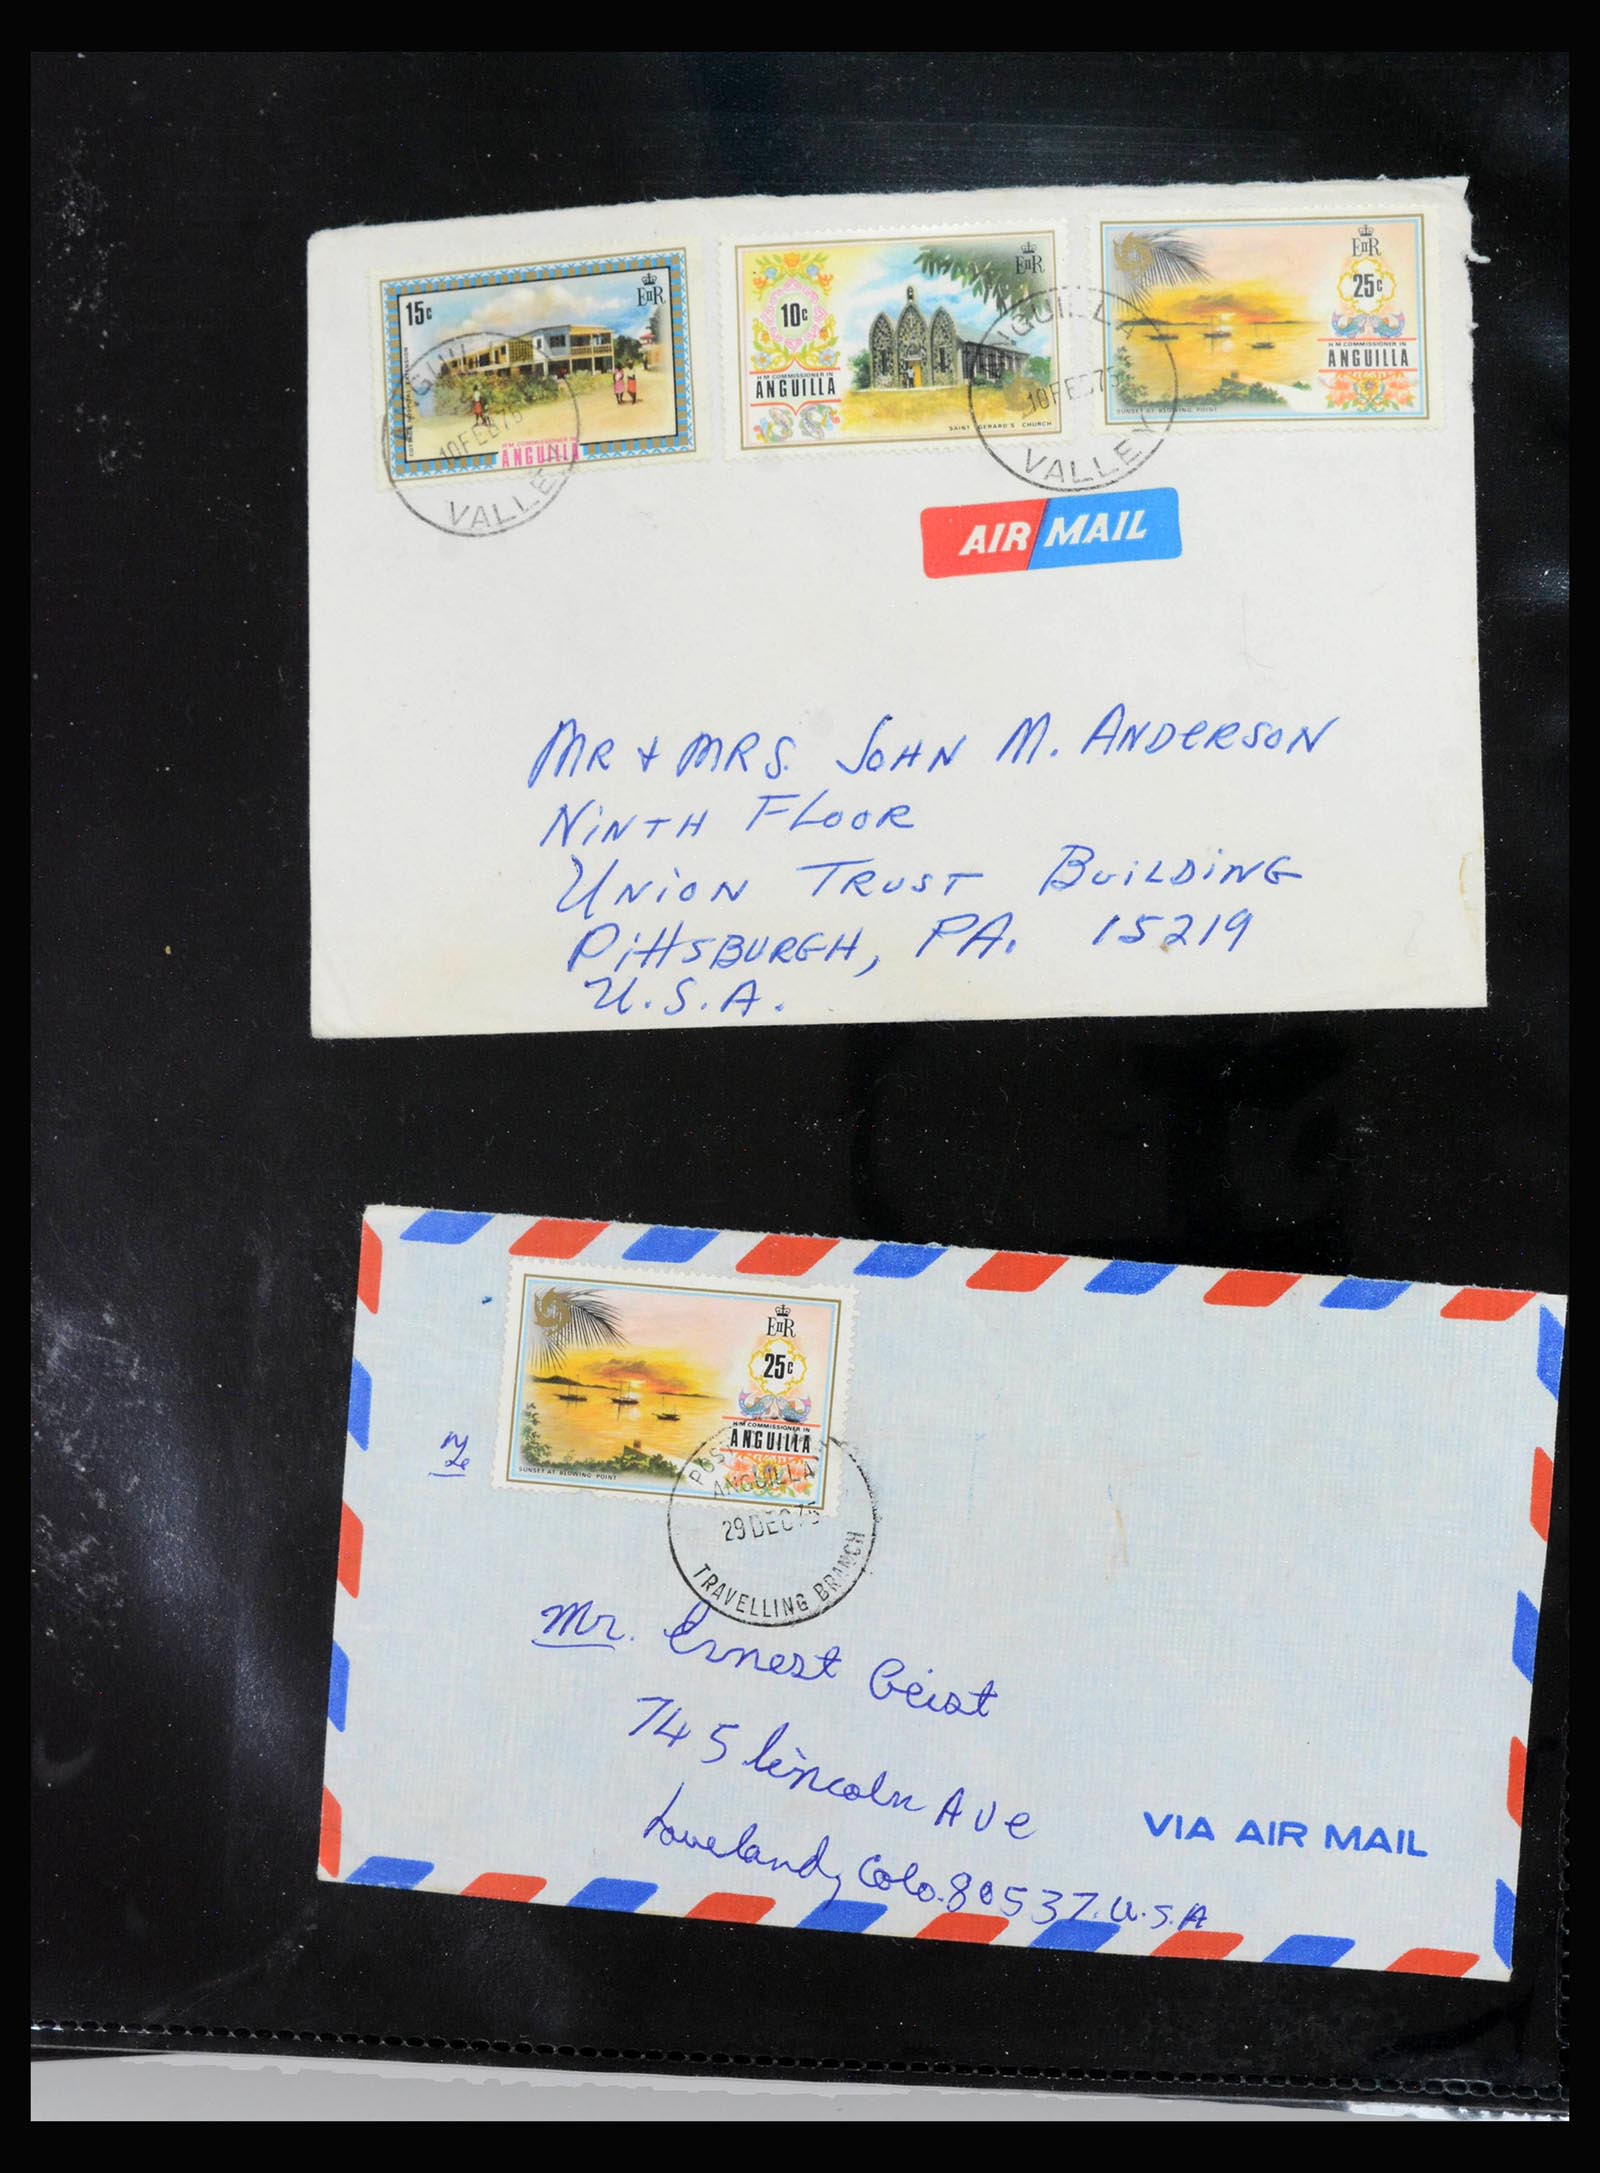 15c
EIIR
H M COMMISSIONER IN
ANGUILLA
10c
EIIR
H M COMMISSIONER IN
ANGUILLA
SAINT GERARD'S CHURCH
EIIR
25c
H M COMMISSIONER IN
ANGUILLA
SUNSET AT BLOWING POINT
10FEB75
VALLEY
ANGUILLA
10FEB75
VALLEY
AIR MAIL
MR + MRS. JOHN M. ANDERSON
NINTH FLOOR
UNION TRUST BUILDING
PITTSBURGH, PA. 15219
U.S.A.
EIIR
25c
H M COMMISSIONER IN
ANGUILLA
SUNSET AT BLOWING POINT
ANGUILLA
29DEC75
TRAVELLING BRANCH
Mr. Ernest Geist
745 Lincoln Ave
Loveland, Colo. 80537. U.S.A
VIA AIR MAIL